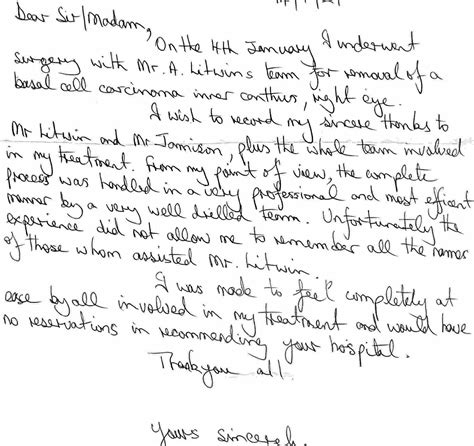 Dear Sir/Madam,
On the 14th January I underwent
surgery with Mr. A. Litwin's team for removal of a
basal cell carcinoma inner canthus, right eye.
I wish to record my sincere thanks to
Mr Litwin and Mr Jamison, plus the whole team involved
in my treatment. From my point of view, the complete
process was handled in a very professional and most efficient
manner by a very well drilled team. Unfortunately the
experience did not allow me to remember all the names
of those whom assisted Mr. Litwin.
I was made to feel completely at
ease by all involved in my treatment and would have
no reservations in recommending your hospital.
Thank you all
Yours sincerely.